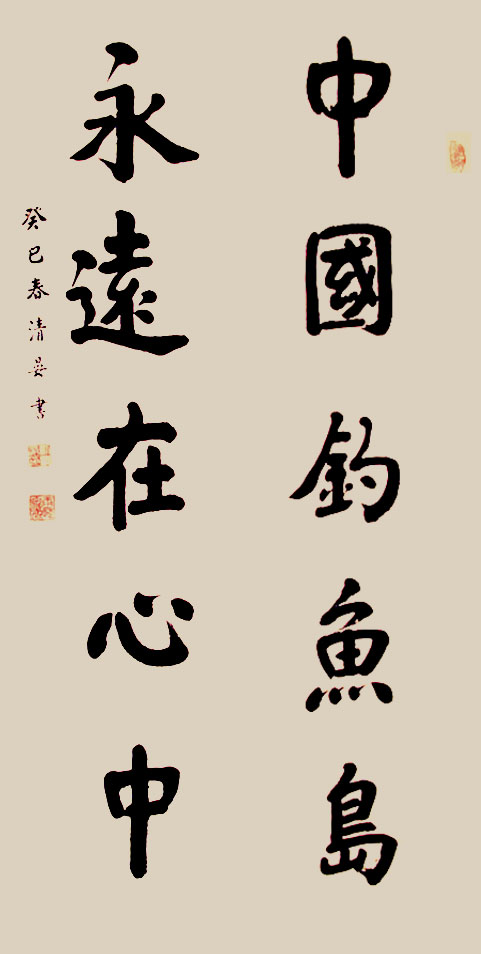 中國釣魚島
永遠在心中
癸巳春清晏書